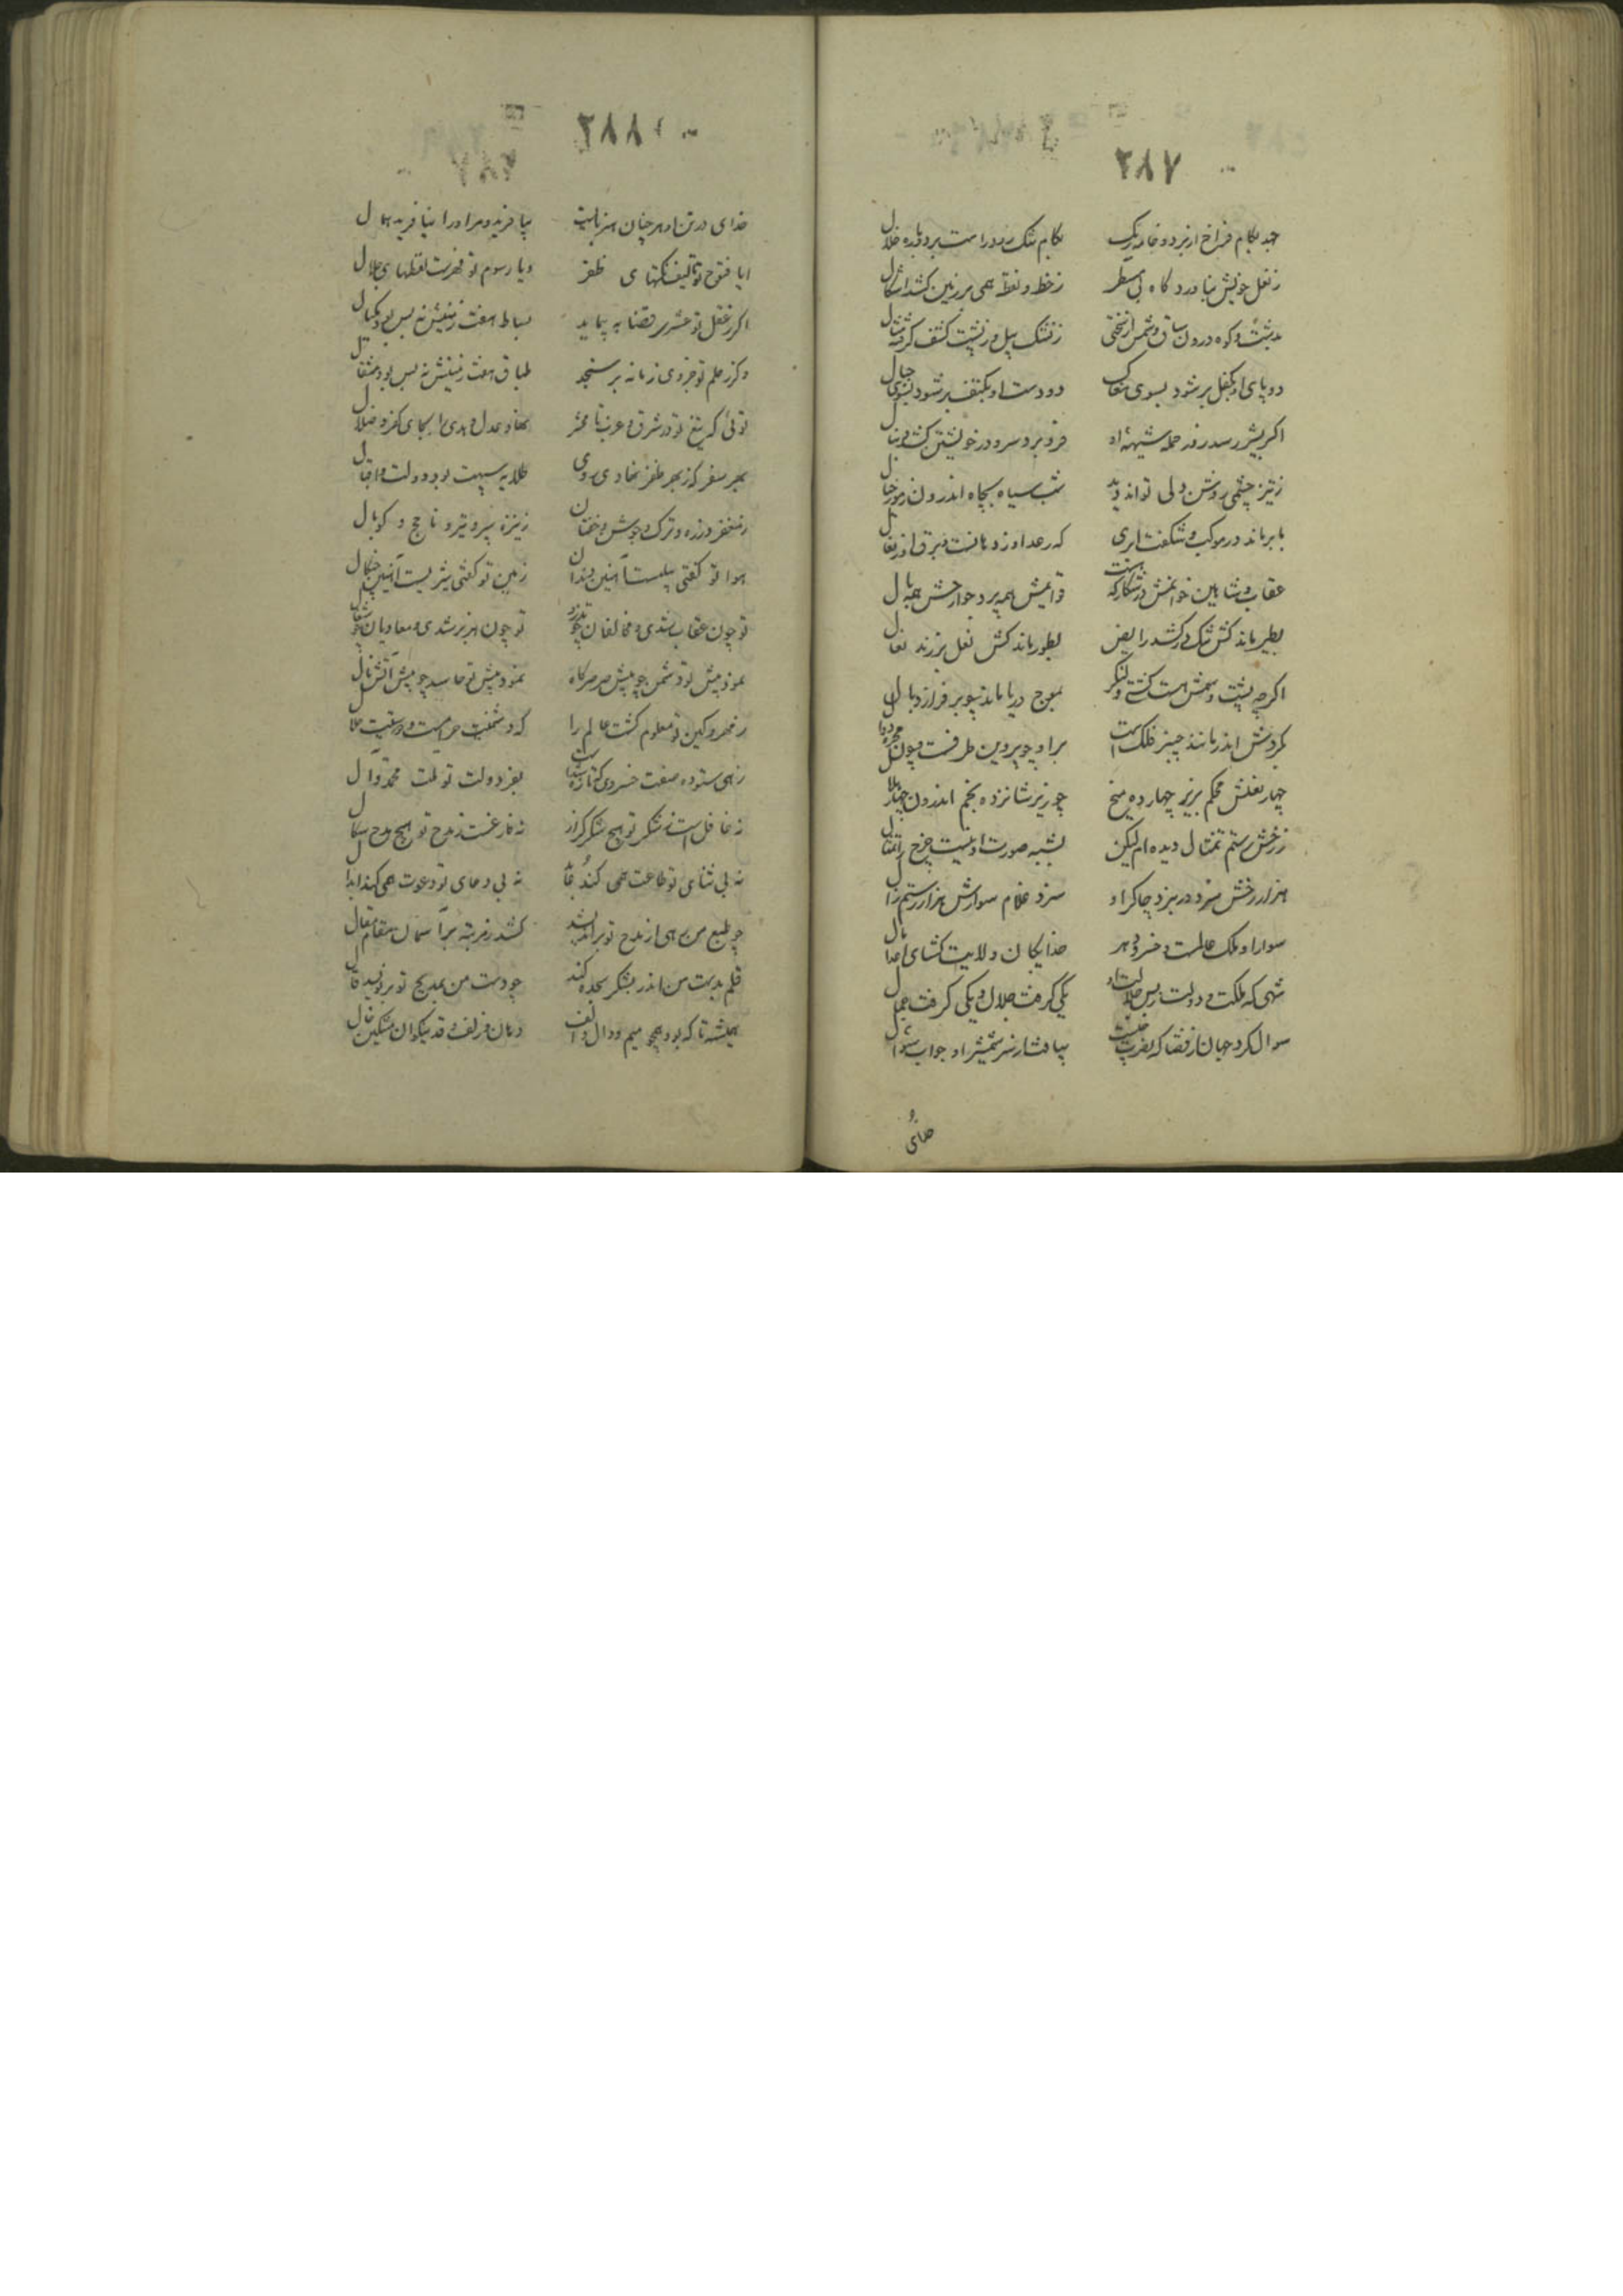 ۲۸۷
جهد بکام فراخ از برد و خانه یک بکام تنک رود راست برد باده خلال
ز نعل خویش بیاورد کاه بی مسطر ز خط و نقطه همی بر زمین کشد اشکال
بدشت و کوه درون ساق و سمش از سختی ز تنک پیل و ز پشت کشف کرفته مثال
دو پای او بکفل بر شود بسوی مغاک دو دست او بکتف بر شود بسوی جبال
اکر بشیر رسد زور حمله شیهه او فرو برد سر و در خویشتن کشد دنبال
ز تیز چشمی و روشن دلی تواند دید شب سیاه بچاه اندرون زمور خیال
بابر ماند در موکب و شکفت ابری که رعد او ز دهانست و برق او ز نعال
عقاب و شاهین خوانمش در شکار که هست قوایمش همه پر و جوارحش همه بال
بطیر ماند کش تنک در کشد رایض بطور ماند کش نعل بر زند نعال
اکرچه پشت و سمش هست کشتی و لنکر بموج دریا ماند بپویه بر فراز و بال
کردنش اندر مانند چنبر فلک است بر او چو پروین طرف است چون مجره دوال
چهار نعلش محکم بزیر چهارده میخ چو زیر شانزده نجم اندرون چهار هلال
ز رخش رستم تمثال دیده ام لیکن بشبه صورت او نیست چرخ را تمثال
هزار رخش سزد در نبرد چاکر او سزد غلام سوارش هزار رستم زال
سوار او ملک عالمست و خسرو دهر خدایکان ولایت کشای اعدا مال
شهی که ملکت و دولت ز بس جلالت او یکی کرفت جلال و یکی کرفت جمال
سوال کرد جهان از قضا که نصرت چیست بیافت از سر شمشیر او جواب سوال
خدای
۲۸۸
خدای در تن او هر چنان هنر بایست بیافرید و مر او را نیافرید همال
ایا فتوح تو تالیف نکتهای ظفر ویا رسوم تو فهرست لفظهای جلال
اکر ز عقل تو عشری قضا به پیماید بساط هفت زمینش نه بس بود مکیال
وکر ز حلم تو جزوی زمانه بر سنجد طباق هفت زمینش نه بس بود مثقال
توئی که تیغ تو در شرق و غرب تا محشر نهاد عدل و هدی را بجای کفر و ضلال
بهر سفر که ز بهر ظفر نهادی روی طلایه سپهت بود دولت و اقبال
ز مغفر و زره و ترک و جوشن و خفتان ز نیزه سپر و تیر و ناچخ و کوپال
هوا تو کفتی پیلست آهنین دندان زمین تو کفتی شیریست آهنین چنکال
تو چون عقاب شدی و مخالفان چو تذرو تو چون هزبر شدی و معادیان چو شغال
نمود پیش تو دشمن چو پیش صرصر کاه نمود پیش تو حاسد چو پیش آتش نال
ز مهر و کین تو معلوم کشت عالم را که دشمنیت حرامست و دوستیت حلال
زهی ستوده صفت خسروی که تازه شدست بعز دولت تو ملت محمد و آل
نه غافل است ز شکر تو هیچ شکرکزار نه فارغست ز مدح تو هیچ مدح سکال
نه بی ثنای تو طاعت همی کند عقال نه بی دعای تو دعوت همی کند ابدال
چو طبع من رهی از مدح تو براندیشد کشد ز مرتبه بر آسمان مقام مقال
قلم بدست من اندر بشکر سجده کند چو دست من بمدیح تو بر نویسد قال
همیشه تا که بود همچو میم و دال و الف دهان و زلف و قد نیکوان مشکین خال